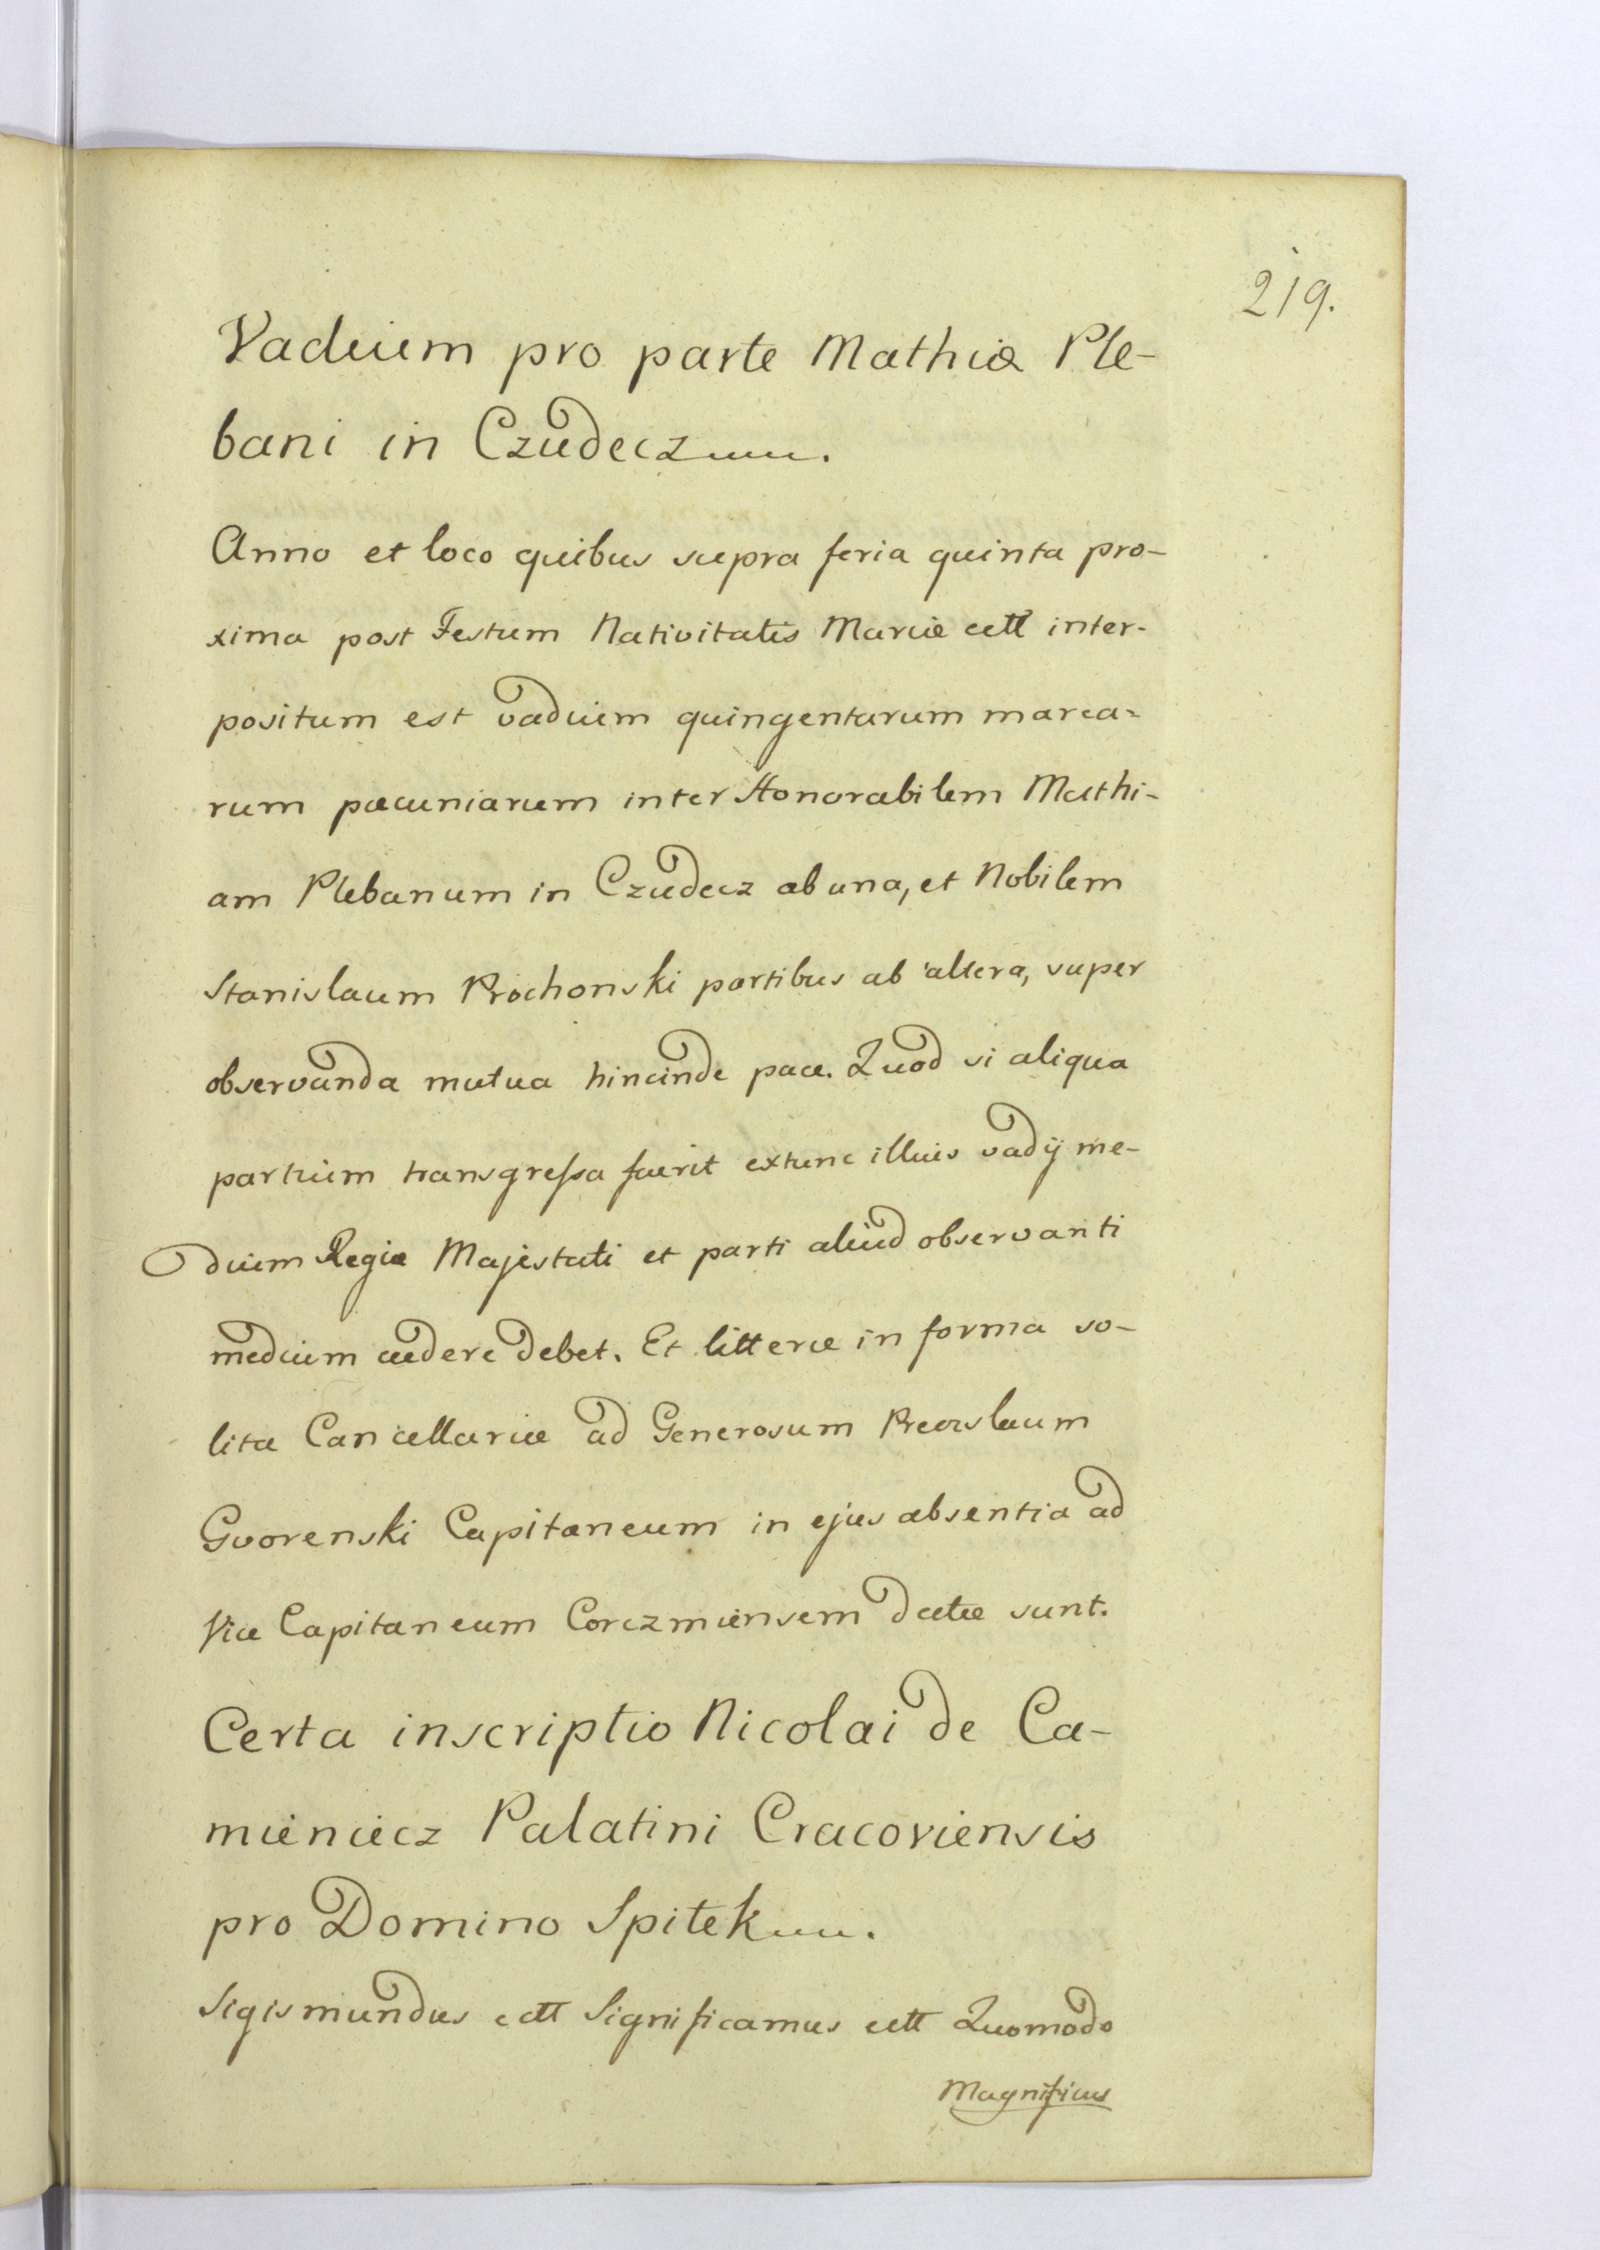 219.
Vadium pro parte Mathiæ Ple-
bani in Czudecz.
Anno et loco quibus supra feria quinta pro-
xima post Festum Nativitatis Mariæ ettt inter-
positum est vadium quingentarum marca=
rum pæcuniarum inter Honorabilem Mathi-
am Plebanum in Czudecz ab una, et Nobilem
Stanislaum Prochonski partibus ab altera, super
observanda mutua hincinde pace. Quod si aliqua
partium transgressa fuerit extunc illius vadij me-
dium Regiæ Majestati et parti aliud observanti
medium cedere debet. Et litteræ in forma so-
lita Cancellariæ ad Generosum Preczslaum
Gvorenski Capitaneum in ejus absentia ad
Vice Capitaneum Corczmiensem datæ sunt.
Certa inscriptio Nicolai de Ca-
mieniecz Palatini Cracoviensis
pro Domino Spitek.
Sigismundus ettt Significamus ettt Quomodo
Magnificus